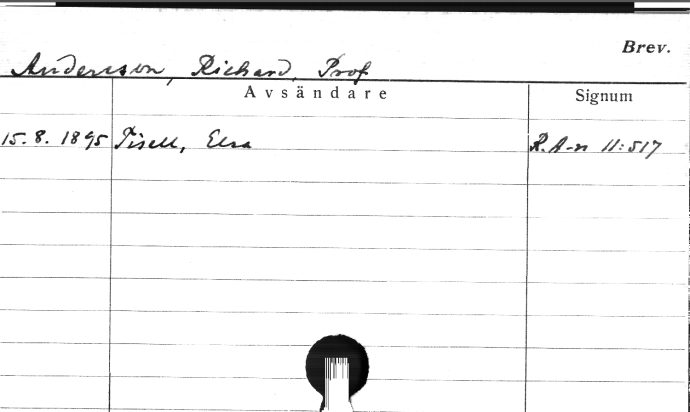 Brev.
Andersson, Richard, Prof.
Avsändare Signum
15.8.1895 Tisell, Elsa R.A-n 11:517